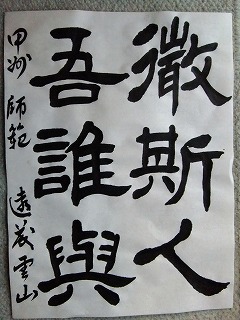 微斯人
吾誰與
甲州 師範 遠藤雲山